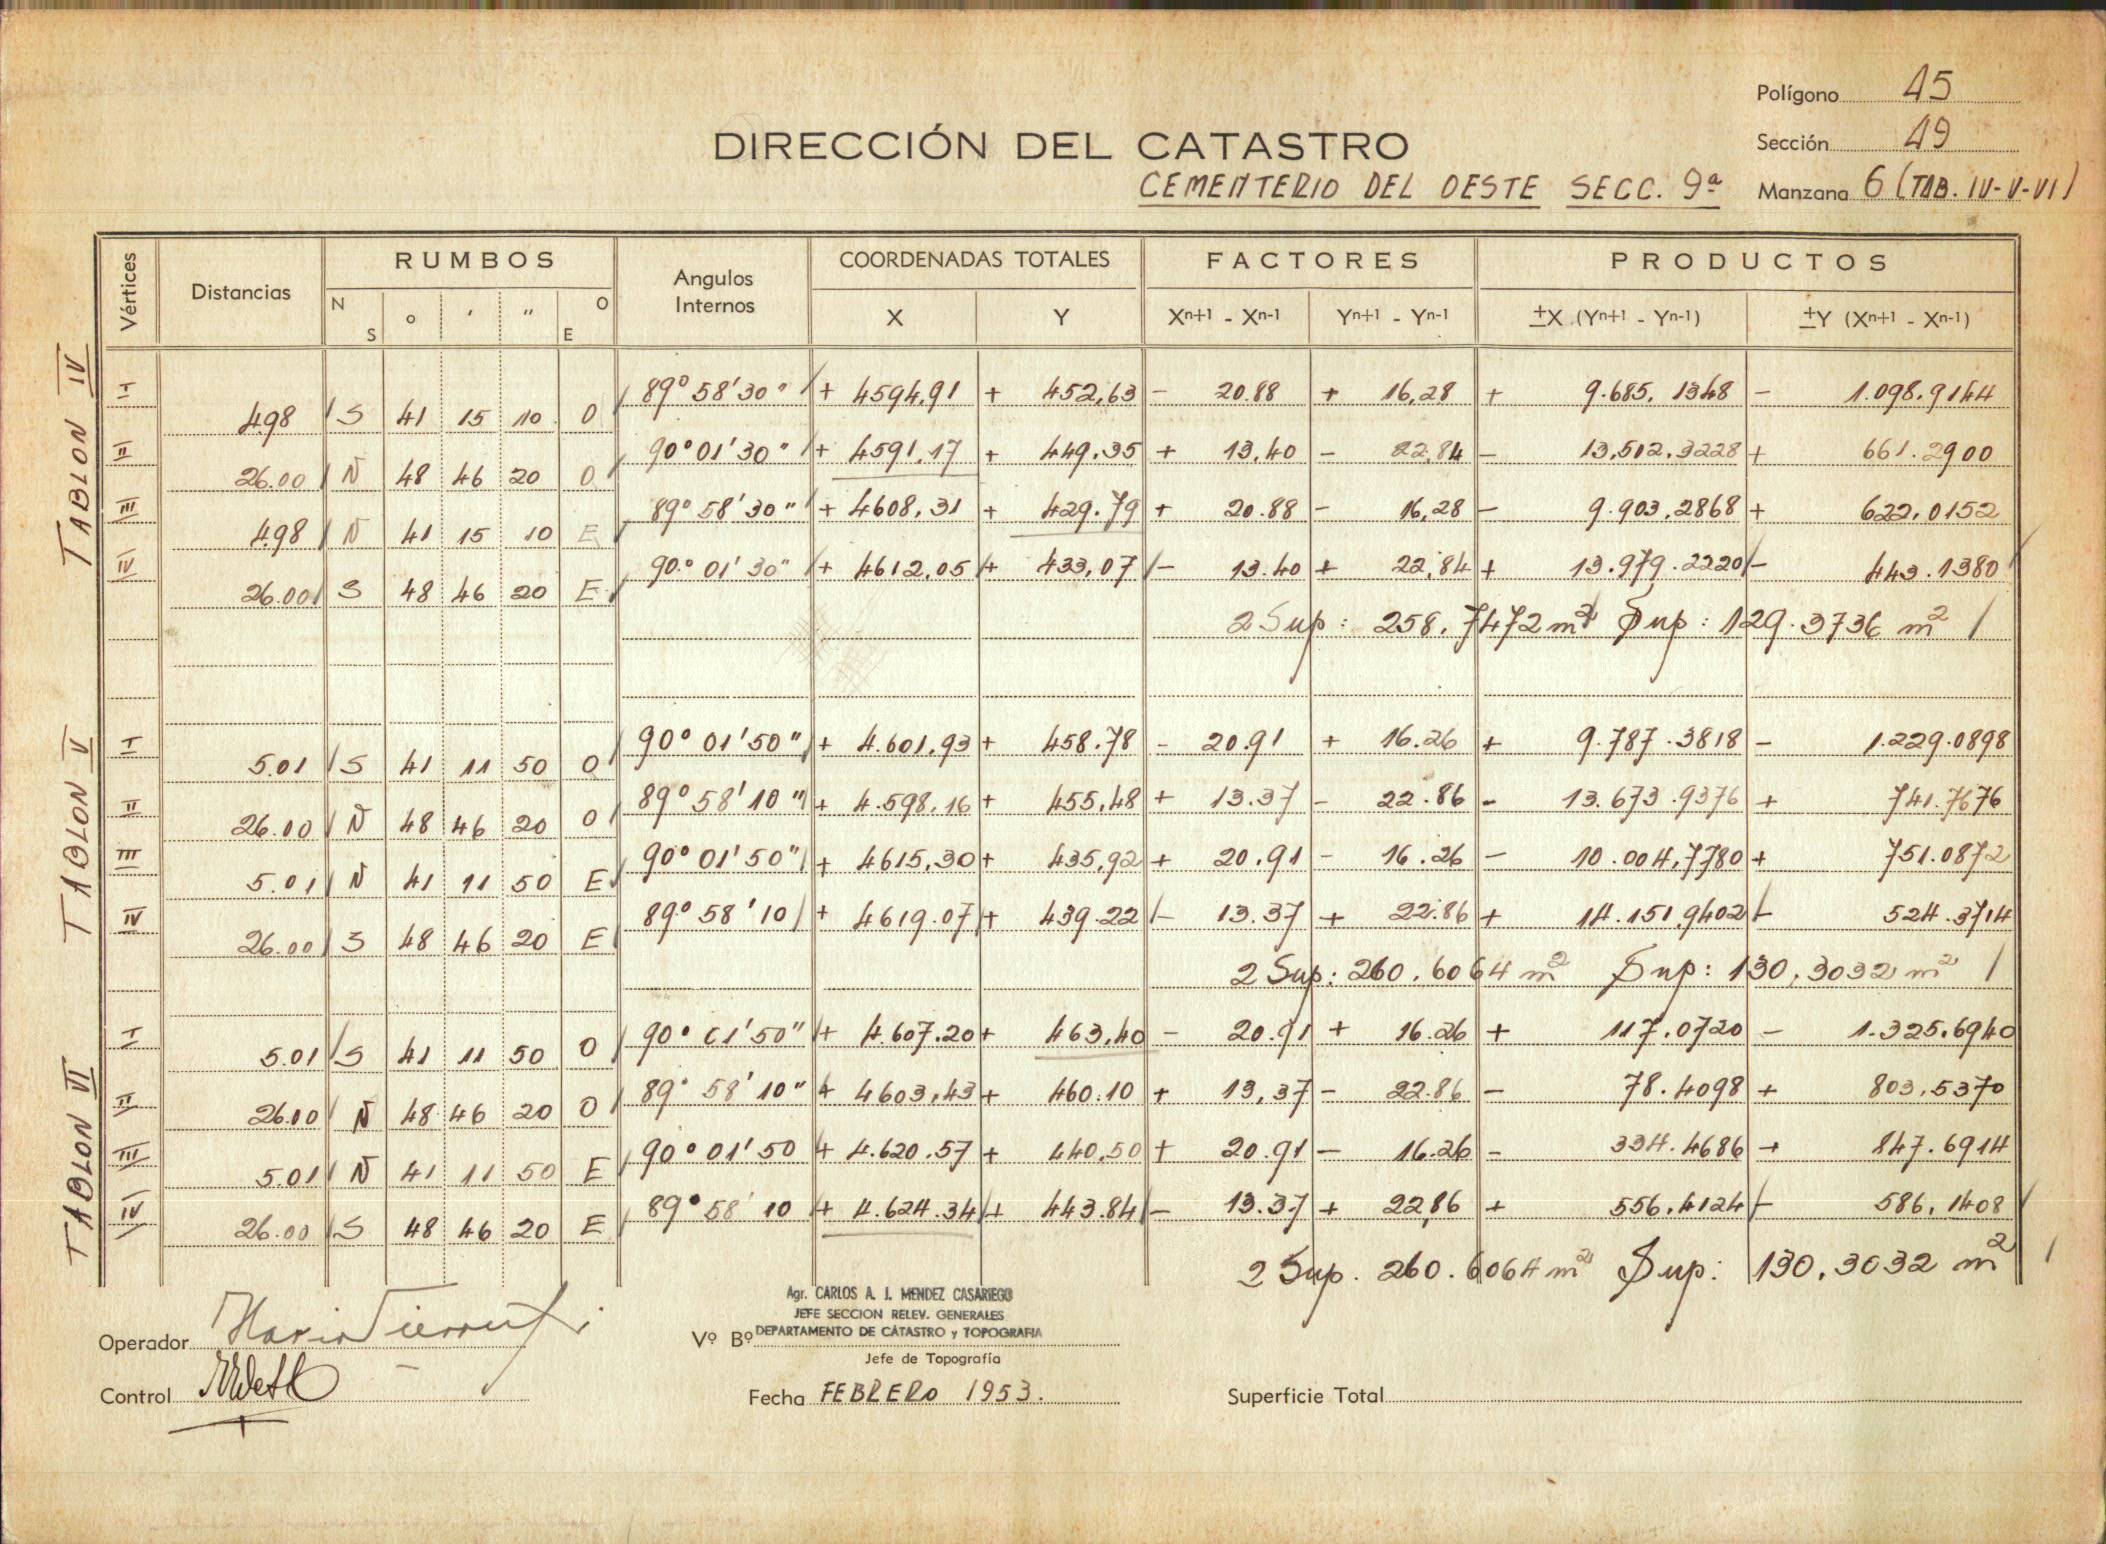 Polígono 45
DIRECCIÓN DEL CATASTRO
Sección 49
CEMENTERIO DEL OESTE SECC. 9ª
Manzana 6 (TAB. IV-V-VI)
Vértices Distancias RUMBOS Angulos Internos COORDENADAS TOTALES FACTORES PRODUCTOS
N S ° ' " O E X Y Xn+1 - Xn-1 Yn+1 - Yn-1 ±X (Yn+1 - Yn-1) ±Y (Xn+1 - Xn-1)
TABLON IV
I 89° 58' 30" + 4594,91 + 452,63 - 20.88 + 16,28 + 9.685,1348 - 1.098.9144
4.98 S 41 15 10 O
II 90° 01' 30" + 4591,17 + 449.35 + 13,40 - 22,84 - 13,502.3228 + 661.2900
26.00 N 48 46 20 O
III 89° 58' 30" + 4608,31 + 429.79 + 20.88 - 16,28 - 9.903.2868 + 622,0152
4.98 N 41 15 10 E
IV 90° 01' 30" + 4612,05 + 433,07 - 13.40 + 22,84 + 13.979.2220 - 443.1380
26.00 S 48 46 20 E
2 Sup: 258.7472 m² Sup: 129.3736 m²
TABLON V
I 90° 01' 50" + 4.601,93 + 458.78 - 20.91 + 16.26 + 9.787.3818 - 1.229.0898
5.01 S 41 11 50 O
II 89° 58' 10" + 4.598,16 + 455,48 + 13.37 - 22.86 - 13.673.9376 + 741.7676
26.00 N 48 46 20 O
III 90° 01' 50" + 4615,30 + 435,92 + 20.91 - 16.26 - 10.004,7780 + 751.0872
5.01 N 41 11 50 E
IV 89° 58' 10 + 4619.07 + 439.22 - 13.37 + 22.86 + 14.151,9402 - 524.3714
26.00 S 48 46 20 E
2 Sup: 260.6064 m² Sup: 130,3032 m²
TABLON VI
I 90° 01' 50" + 4.607.20 + 463,40 - 20.91 + 16.26 + 117.0720 - 1.325.6940
5.01 S 41 11 50 O
II 89° 58' 10" + 4603,43 + 460.10 + 13,37 - 22.86 - 78.4098 + 803,5370
26.00 N 48 46 20 O
III 90° 01' 50 + 4.620.57 + 440,50 + 20.91 - 16.26 - 334.4686 + 847.6914
5.01 N 41 11 50 E
IV 89° 58' 10 + 4.624.34 + 443.84 - 13.37 + 22,86 + 556,4124 - 586,1408
26.00 S 48 46 20 E
2 Sup. 260.6064 m² Sup: 130,3032 m²
Agr. CARLOS A. J. MENDEZ CASARIEGO
JEFE SECCION RELEV. GENERALES
Operador Vº Bº DEPARTAMENTO DE CATASTRO y TOPOGRAFIA
Jefe de Topografía
Control Fecha FEBRERO 1953. Superficie Total